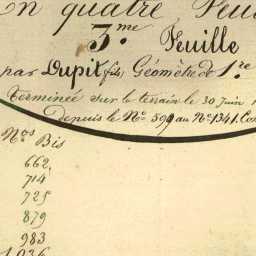 en quatre Feu
3.me Feuille
par Dupit (fils) Géomètre de 1.re
Terminée sur le terrain le 30 Juin 1
Depuis le No. 599 au No 1341. Con
Nos Bis
662.
714
725
879
983
1036